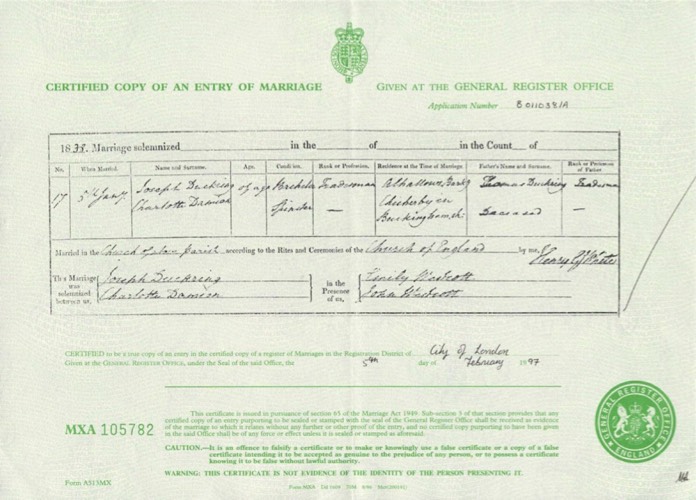 CERTIFIED COPY OF AN ENTRY OF MARRIAGE
GIVEN AT THE GENERAL REGISTER OFFICE
Application Number
1838. Marriage solemnized in the of in the Count of
No. When Married. Name and Surname. Age. Condition. Rank or Profession. Residence at the Time of Marriage. Father's Name and Surname. Rank or Profession of Father.
17 5th Jany Joseph Duckring of age Tradesman Thomas Duckring Tradesman
Charlotte Damien —
Buckinghamsh: Deceased —
Married in the Church according to the Rites and Ceremonies of the Church of England by me, Henry
This Marriage was solemnized between us,
Joseph Duckring
Charlotte Damien
in the Presence of us,
Emily Westcott
John Westcott
CERTIFIED to be a true copy of an entry in the certified copy of a register of Marriages in the Registration District of City of London
Given at the GENERAL REGISTER OFFICE, under the Seal of the said Office, the 5th day of February 1997
MXA 105782
This certificate is issued in pursuance of section 65 of the Marriage Act 1949. Sub-section 3 of that section provides that any
certified copy of an entry purporting to be sealed or stamped with the seal of the General Register Office shall be received as evidence
of the marriage to which it relates without any further or other proof of the entry, and no certified copy purporting to have been given
in the said Office shall be of any force or effect unless it is sealed or stamped as aforesaid.
CAUTION.—It is an offence to falsify a certificate or to make or knowingly use a false certificate or a copy of a false
certificate intending it to be accepted as genuine to the prejudice of any person, or to possess a certificate
knowing it to be false without lawful authority.
WARNING: THIS CERTIFICATE IS NOT EVIDENCE OF THE IDENTITY OF THE PERSON PRESENTING IT.
Form A513MX
GENERAL REGISTER OFFICE
ENGLAND